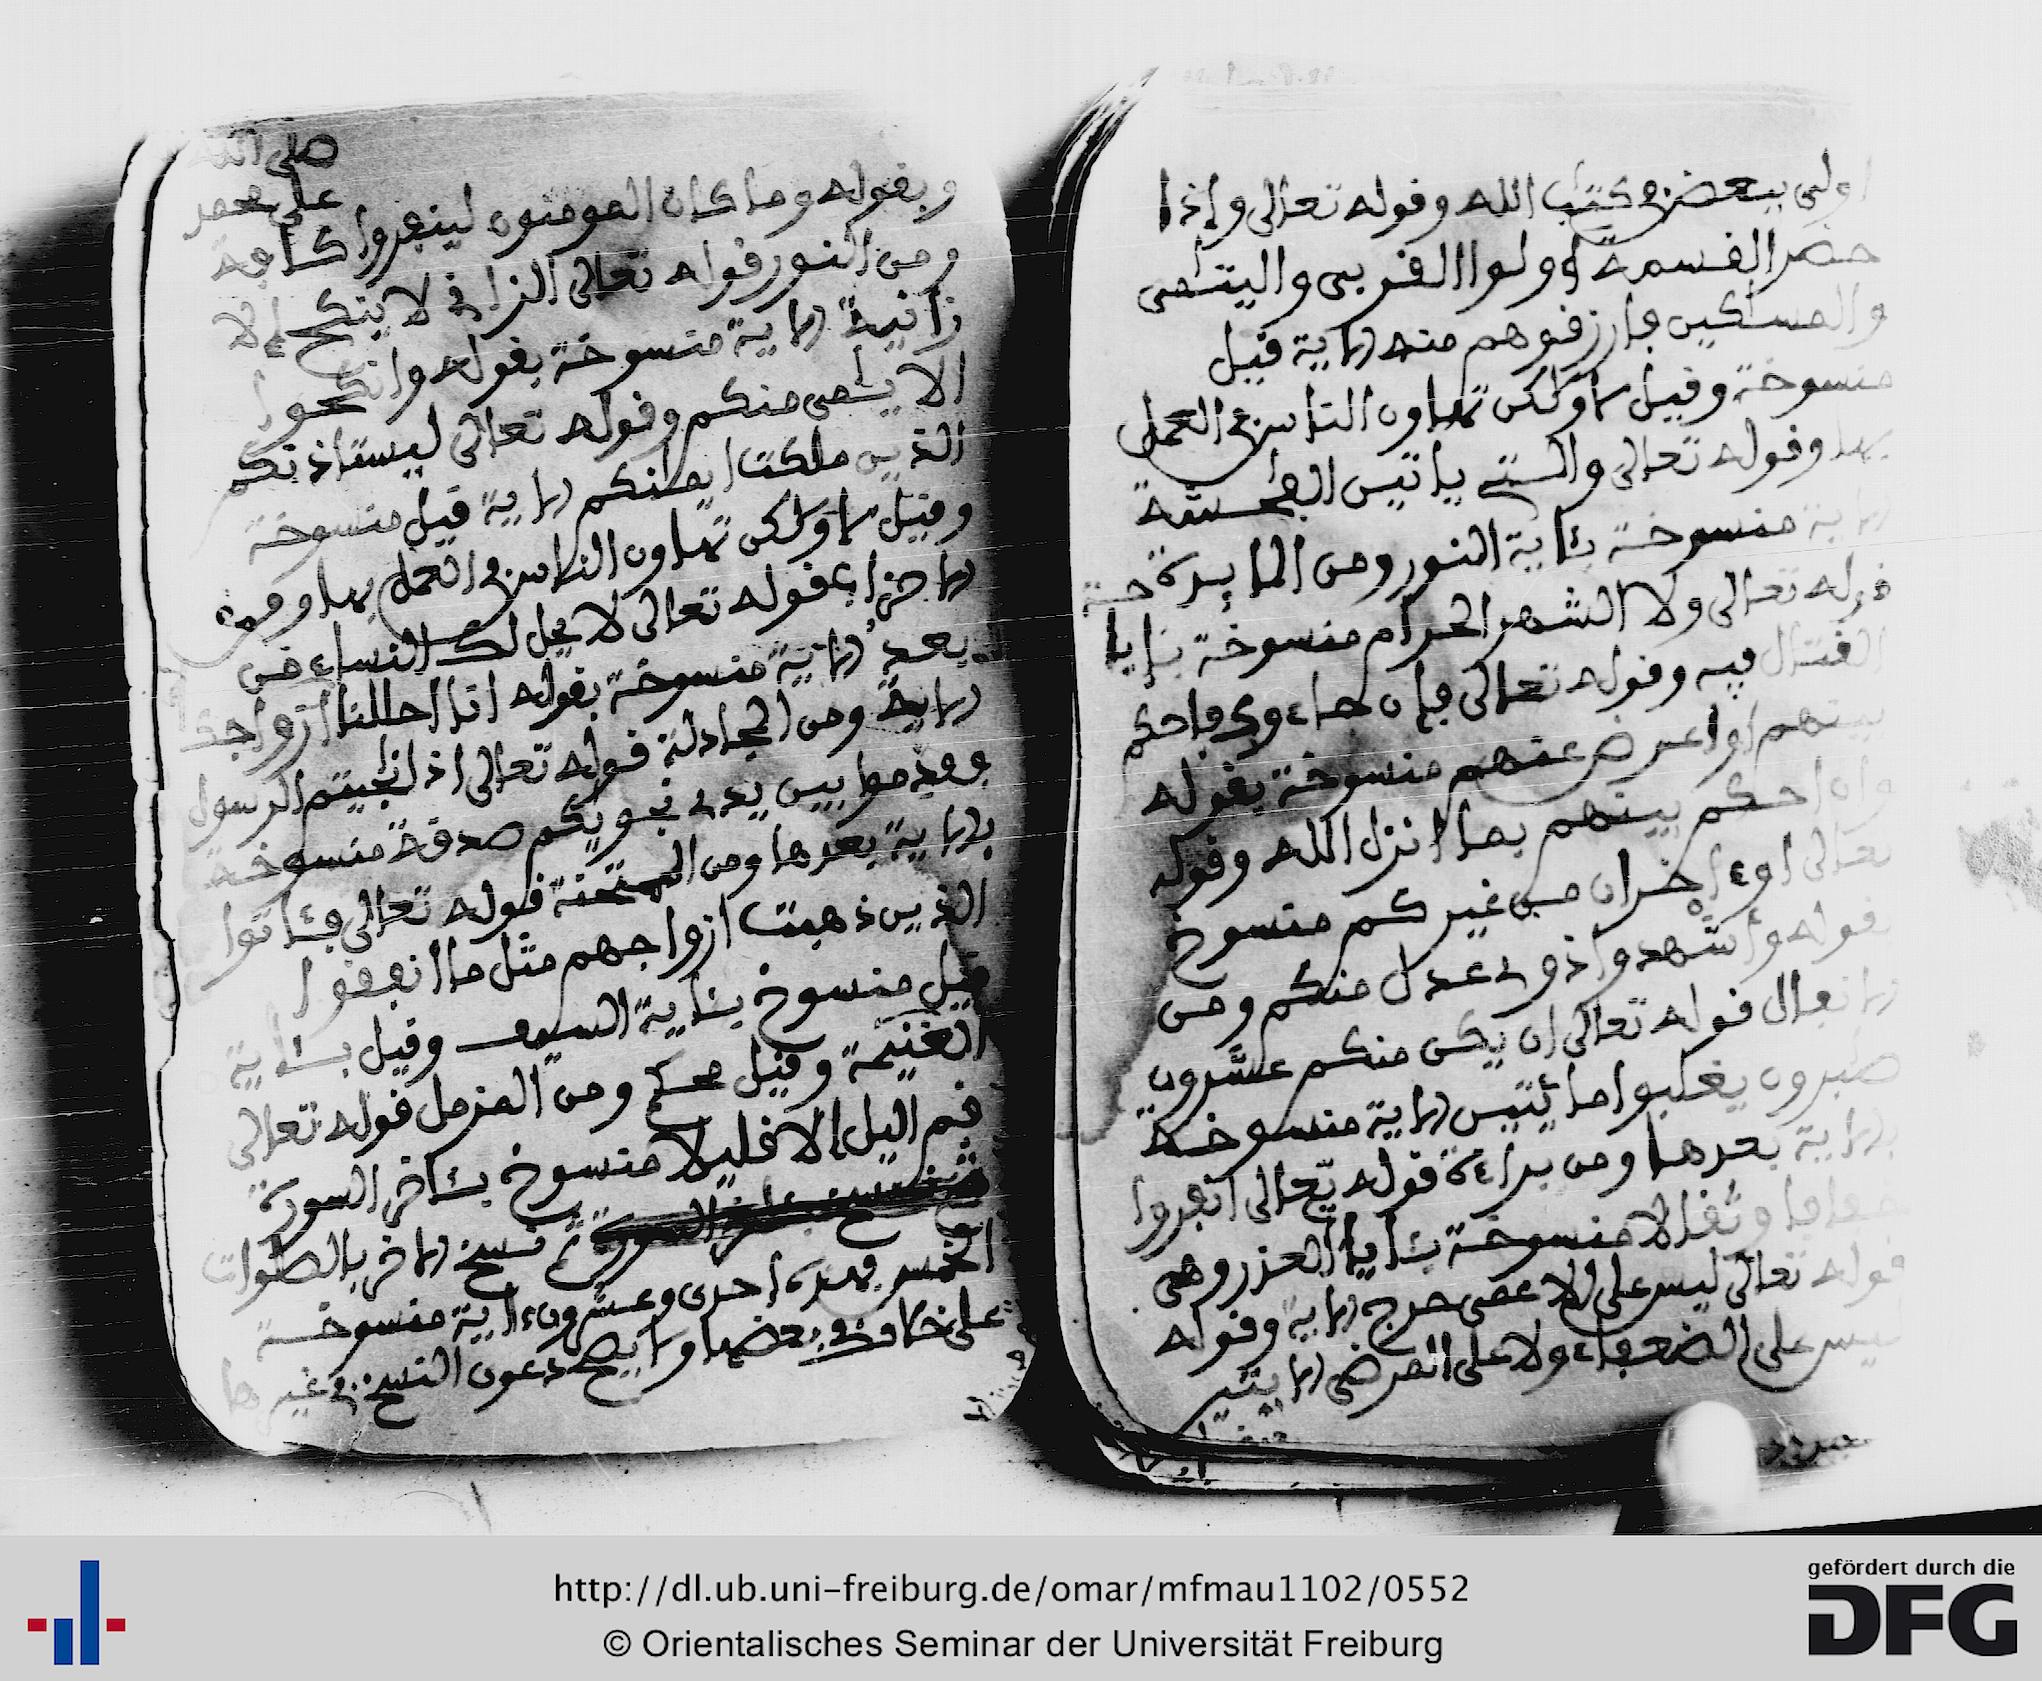 اولى ببعض في كتب الله وقوله تعالى وإذا
حضر القسمة أولوا القربى واليتمى
والمسكين فارزقوهم منه الآية قيل
منسوخة وقيل لا ولكن تهاون الناس في العمل
بها وقوله تعالى والتي ياتين الفحشة
الآية منسوخة بئاية النور ومن المائدة
قوله تعالى ولا الشهر الحرام منسوخة بإباحة
القتال فيه وقوله تعالى فإن جاءوك فاحكم
بينهم او اعرض عنهم منسوخة بقوله
وان احكم بينهم بما انزل الله وقوله
تعالى اوءاخران من غيركم منسوخ
بقوله وأشهدوا ذوى عدل منكم ومن
الانفال قوله تعالى ان يكن منكم عشرون
صبرون يغلبوا مائتين الآية منسوخة
بالآية بعدها ومن براءة قوله تعالى انفروا
خفافا وثقالا منسوخة بئايات العذر وهي
قوله تعالى ليس على الاعمى حرج الآية وقوله
ليس على الضعفاء ولا على المرضى الآيتين
صلى الله
على محمد
وبقوله وما كان المومنون لينفروا كافة
ومن النور قوله تعالى الزاني لا ينكح إلا
زانية الآية منسوخة بقوله وانكحوا
الايمى منكم وقوله تعالى ليستاذنكم
الذين ملكت ايمنكم الآية قيل منسوخة
وقيل لا ولكن تهاون الناس في العمل بها ومن
الاحزاب قوله تعالى لا يحل لك النساء من
بعد الآية منسوخة بقوله انا احللنا لك ازواجك
الآية ومن المجادلة قوله تعالى اذا نجيتم الرسول
فقدموا بين يدى نجويكم صدقة منسوخة
بالآية بعدها ومن الممتحنة قوله تعالى فئاتوا
الذين ذهبت ازواجهم مثل ما انفقوا
قيل منسوخ بئاية السيف وقيل بئاية
الغنيمة وقيل محكم ومن المزمل قوله تعالى
قم اليل إلا قليلا منسوخ بئاخر السورة
ثم نسخ الآخر بالصلوات
الخمس فهذه احدى وعشرون ءاية منسوخة
على خلاف في بعضها ولا يصح دعوى النسخ في غيرها
http://dl.ub.uni-freiburg.de/omar/mfmau1102/0552
© Orientalisches Seminar der Universität Freiburg
gefördert durch die
DFG